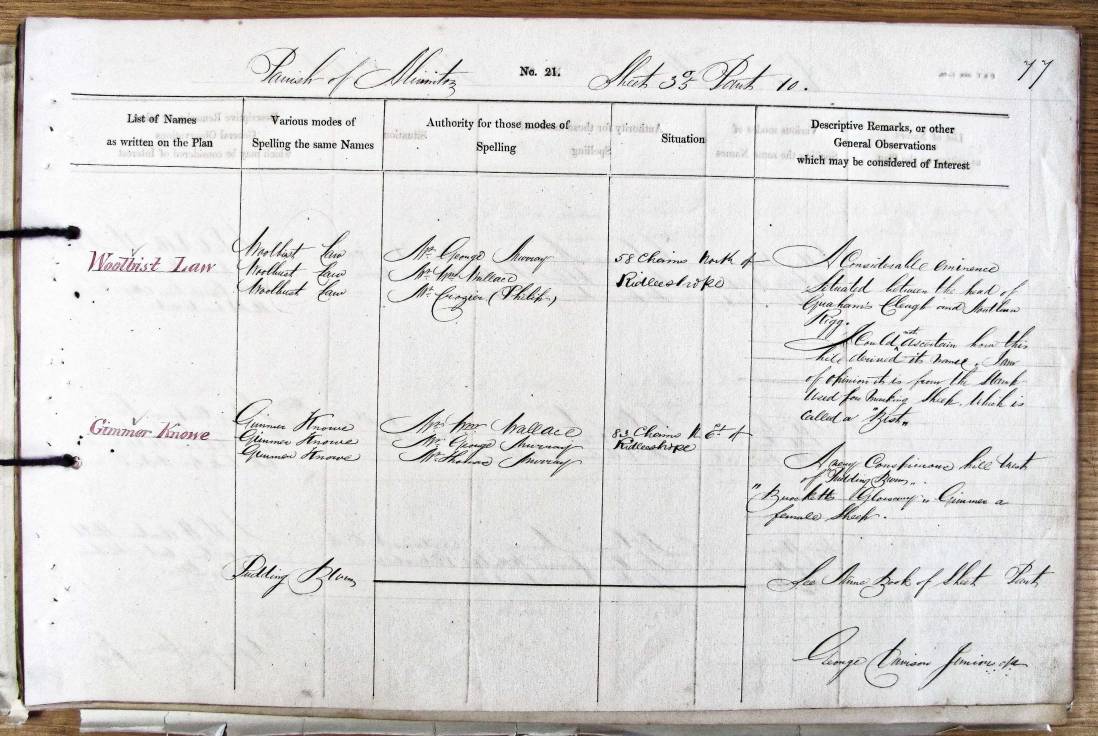 Parish of Alwinton
No. 21.
Sheet 33 Part 10.
77
List of Names
as written on the Plan
Various modes of
Spelling the same Names
Authority for those modes of
Spelling
Situation
Descriptive Remarks, or other
General Observations
which may be considered of Interest
Woolbist Law
Woolbist Law
Woolbist Law
Woolbist Law
Mr. George Murray
Mr. Wm. Wallace
Mr. Crozier (Philip)
58 Chains North of
Ridleeshope
A Considerable eminence
Situated between the head of
Grahams Cleugh and
Rigg.
I Could not ascertain how this
hill derived its name. I am
of opinion it is from the Mark
Used for Marking Sheep. Which is
Called a "Bist"
Gimmer Knowe
Gimmer Knowe
Gimmer Knowe
Gimmer Knowe
Mr. Wm. Wallace
Mr. George Murray
Mr. Thomas Murray
83 Chains N. Et. of
Ridleeshope
A very Conspicuous hill West
of "Pudding Burn".
"Brocketts Glossary" Gimmer a
female Sheep.
Pudding Burn
See Name Book of Sheet Part
George Davison Junior